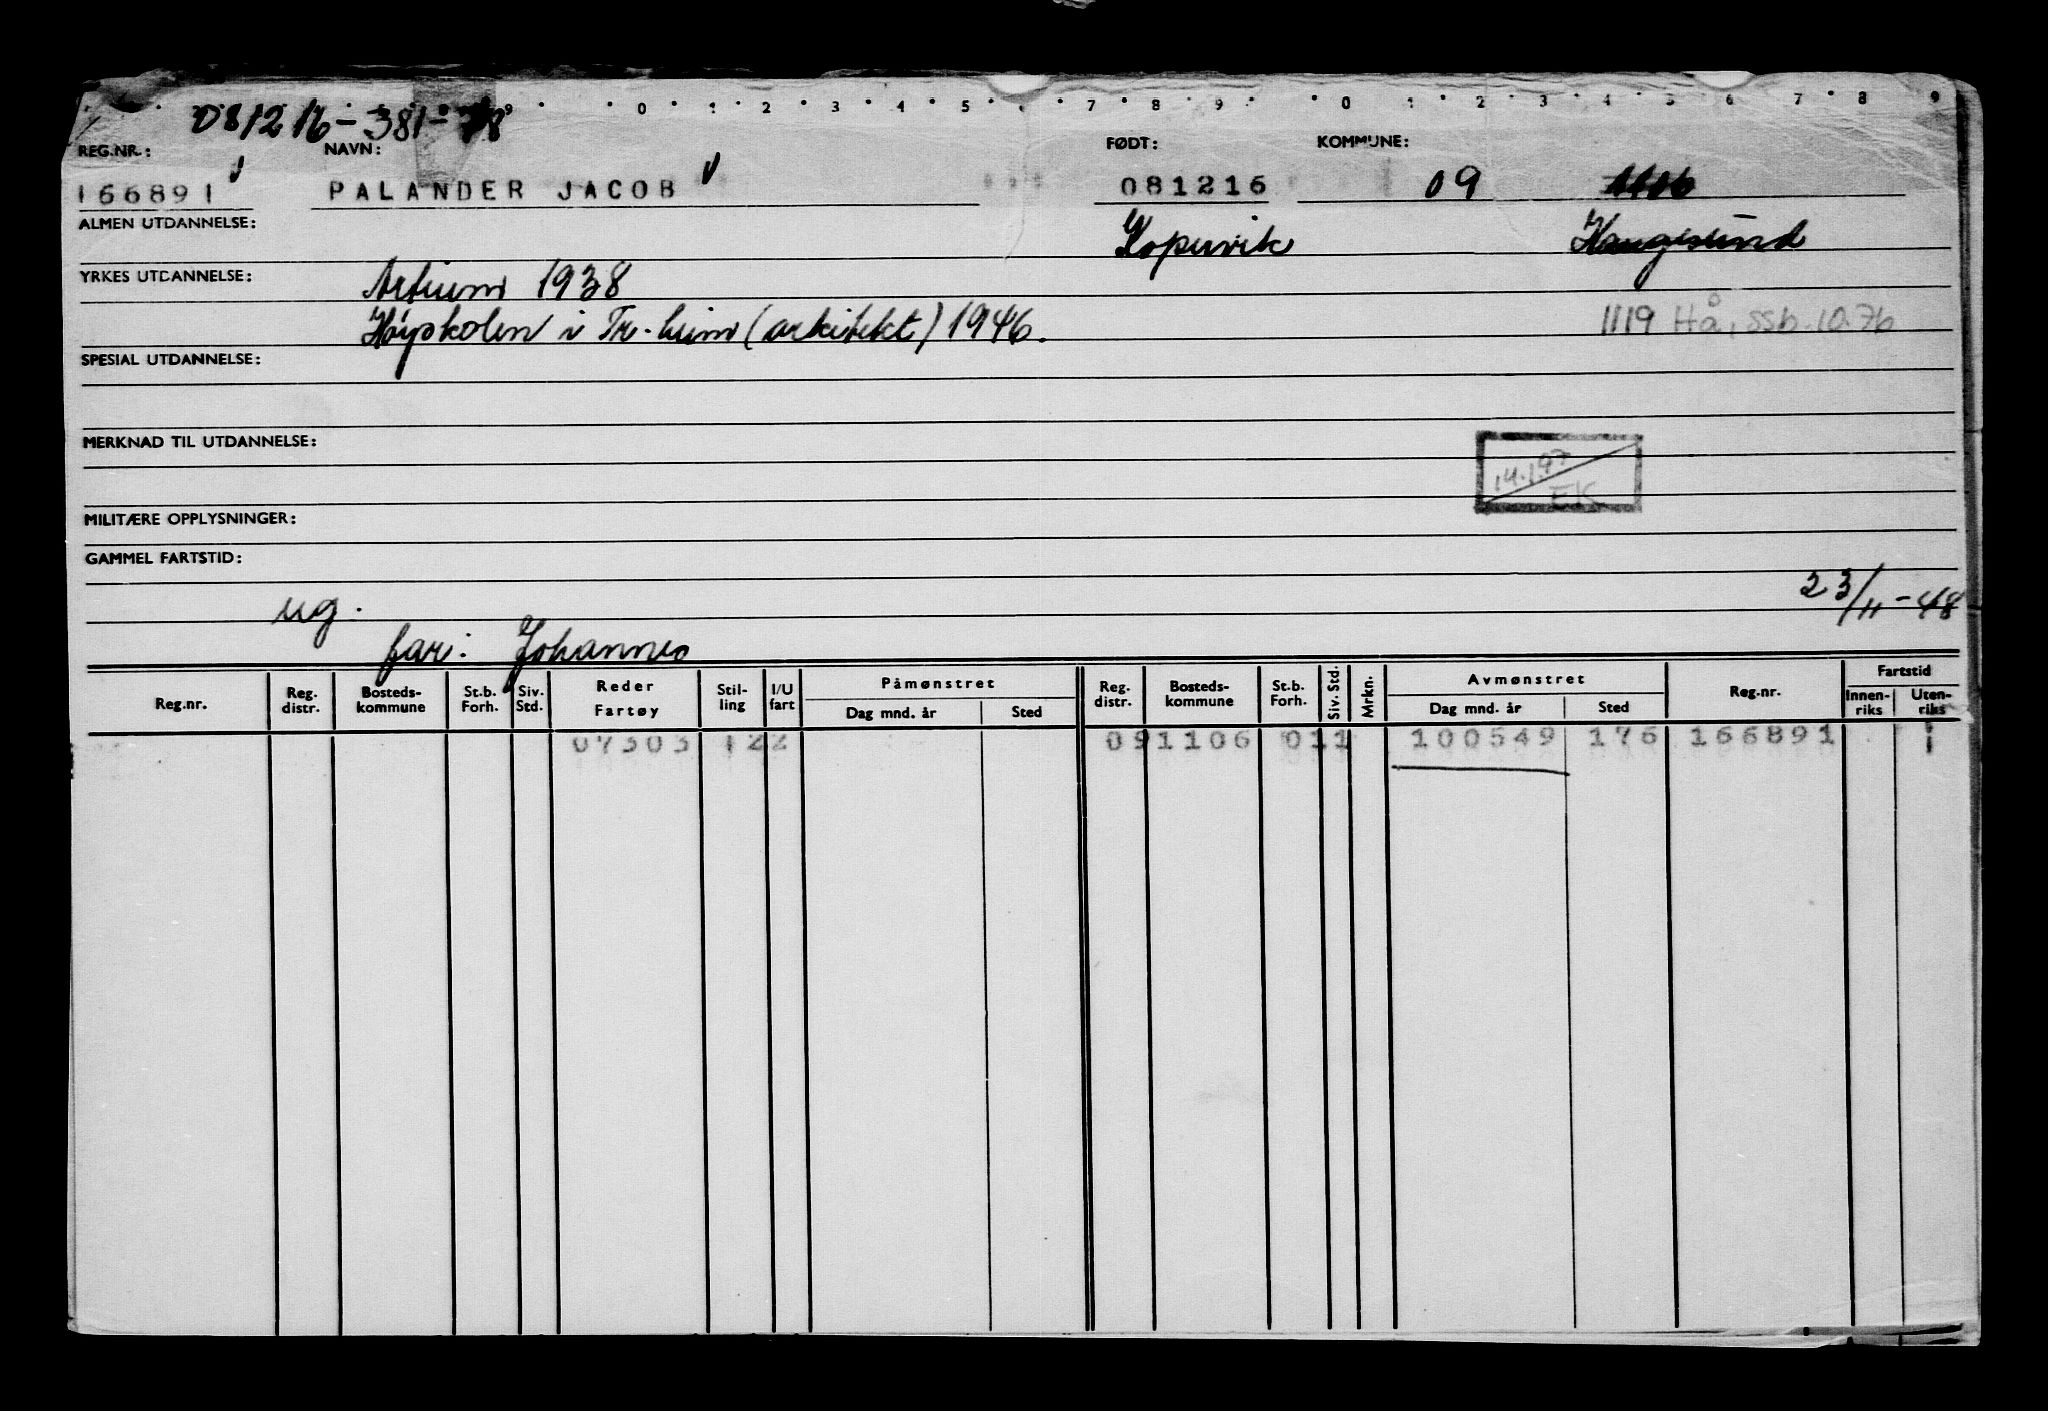 0 1 2 3 4 5 7 8 9 0 1 2 3 4 5 6 7 8 9
081216-381-
REG.NR.: NAVN: FØDT: KOMMUNE:
166891 PALANDER JACOB 081216 09 1106
ALMEN UTDANNELSE: Kopervik Haugesund
YRKES UTDANNELSE: Artium 1938
Høyskolen i Tr.heim (arkitekt) 1946. 1119 Hå, ssb. 10.76
SPESIAL UTDANNELSE:
MERKNAD TIL UTDANNELSE:
14.1.97
EK
MILITÆRE OPPLYSNINGER:
GAMMEL FARTSTID:
23/11-48
ug.
far: Johannes
Reg.nr. Reg. distr. Bosteds- kommune St.b. Forh. Siv. Std. Reder Fartøy Stil- ling I/U fart Påmønstret Dag mnd. år Sted Reg. distr. Bosteds- kommune St.b. Forh. Siv. Std. Mrkn. Avmønstret Dag mnd. år Sted Reg.nr. Fartstid Innen- riks Uten- riks
07303 122 091106 011 100549 176 166891 1